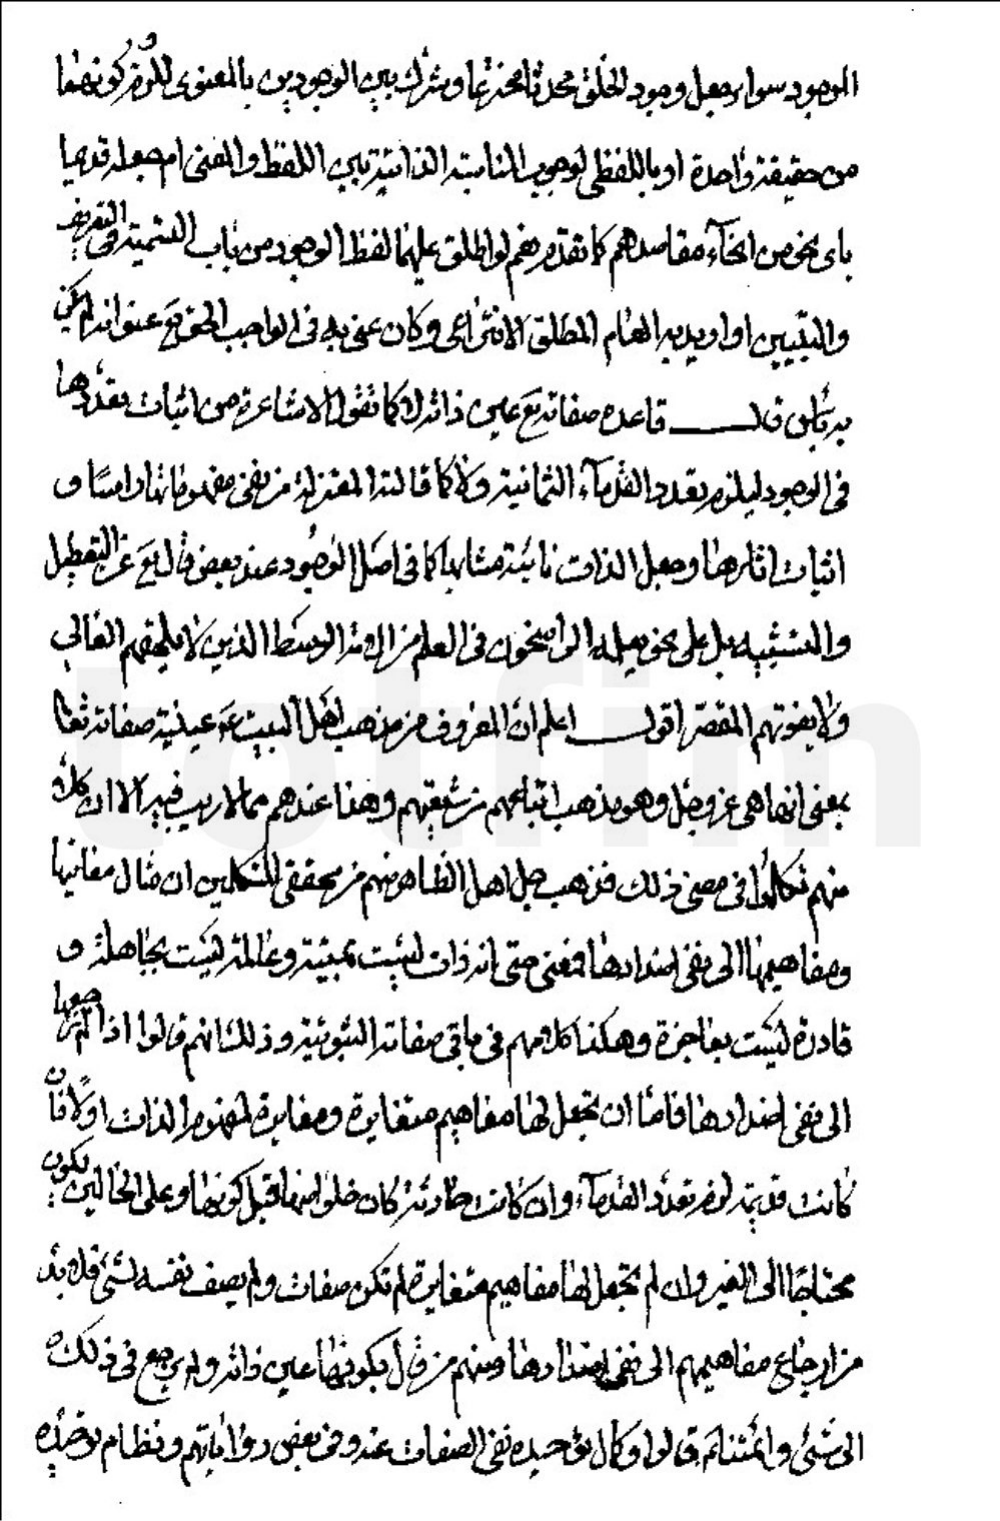 الموجود سواء جعل وجود الخلق محدثا مخترعا وشرك بين الوجودين بالمعنوى للزوم كونهما
من حقيقة واحدة او باللفظى لوجوب المناسبة الذاتية بين اللفظ والمعنى ام جعله قديما
باى نحو من انحآء مقاصدهم كما تقدم نعم لو اطلق عليهما لفظ الوجود من باب التسمية فى التعريف
والتبيين او اريد به العام المطلق الانتزاعى وكان عنى به فى الواجب الحق تع عنوانه لم يكن
به باس قال قاعدة صفاته تع عين ذاته لا كما تقوله الاشاعرة من اثبات تعددها
فى الوجود ليلزم تعدد القدمآء الثمانية ولا كما قالته المعتزلة من نفى مفهوماتها راسا و
اثبات اثارها وجعل الذات نائبة منابها كما فى اصل الوجود عند بعض تعالى عن التعطيل
والتشبيه بل على نحو يعلمه الراسخون فى العلم من الامة الوسط الذين لا يلحقهم الغالى
ولا يفوتهم المقصر اقول اعلم ان المعروف من مذهب اهل البيت ع عينية صفاته تعالى
بمعنى انها هى عز وجل وهو مذهب اتباعهم من شيعتهم وهذا عندهم مما لا ريب فيه الا ان كلا
منهم تكلموا فى معنى ذلك فذهب جل اهل الظاهر منهم من محققى المتكلمين ان مئال معانيها
ومفاهيمها الى نفى اضدادها فمعنى حى انه ذات ليست بميتة وعالمة ليست بجاهلة و
قادرة ليست بعاجزة وهكذا كلامهم فى باقى صفاته الثبوتية وذلك انهم قالوا اذا لم نرجعها
الى نفى اضدادها فاما ان نجعل لها مفاهيم متغايرة ومغايرة لمفهوم الذات اولا فان
كانت قديمة لزم تعدد القدمآء وان كانت حادثة كان خلوا منها قبل كونها وعلى الحالين يكون
محتاجا الى الغير وان لم نجعل لها مفاهيم متغايرة لم تكن صفات ولم يصف نفسه بشئ فلا بد
من ارجاع مفاهيمهم الى نفى اضدادها ومنهم من قال بكونها عين ذاته ولم يرجع فى ذلك
الى شئ وائمتنا ع قالوا وكمال توحيده نفى الصفات عنه وفى بعض رواياتهم ونظام توحيده